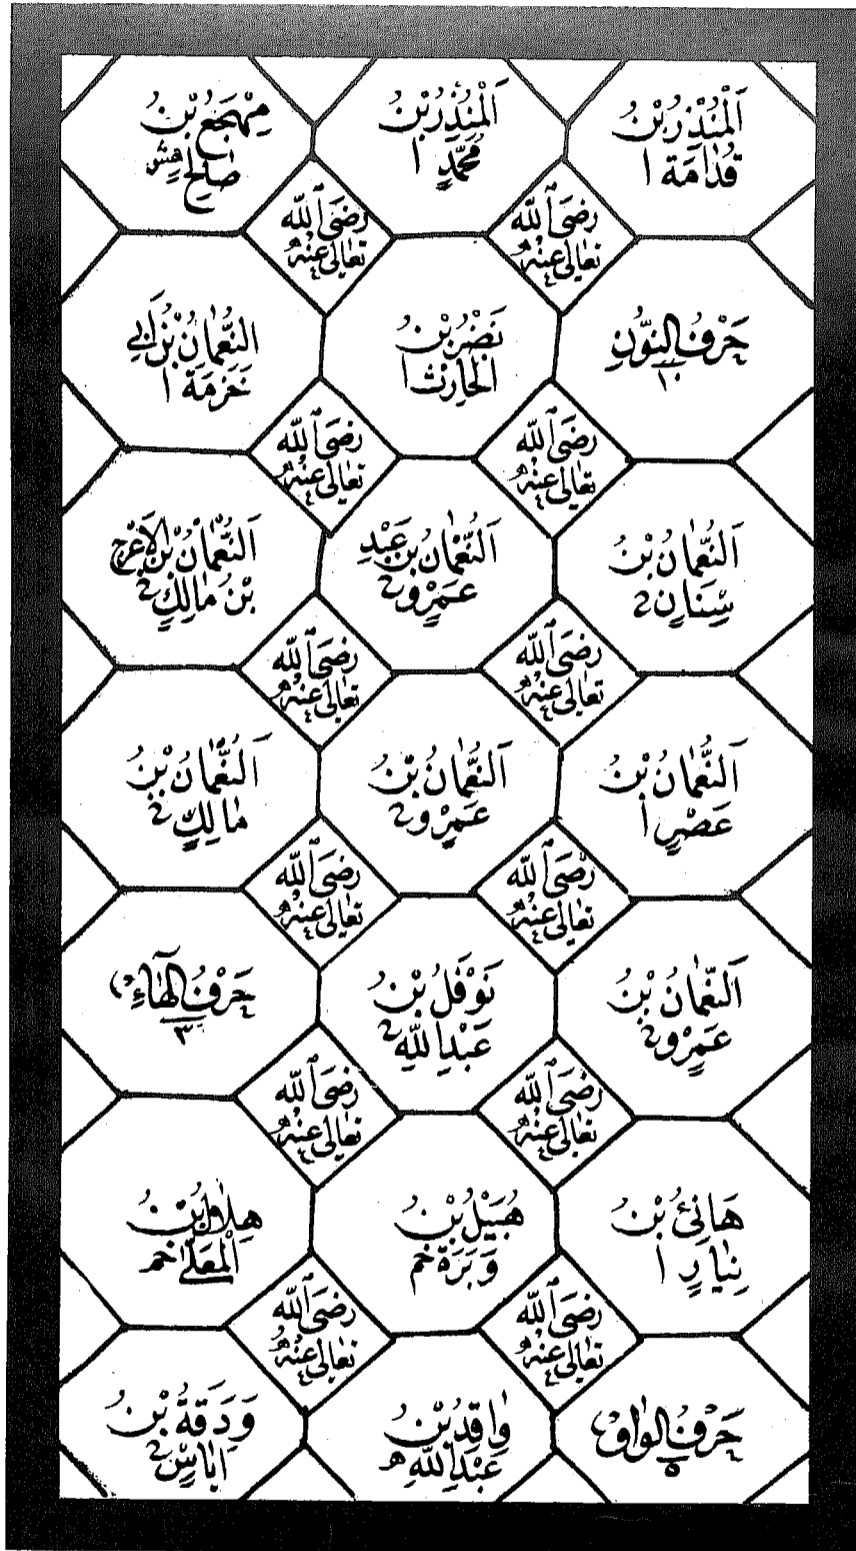 اَلْمُنْذِرُ بْنُ
قُدَامَةَ ا
اَلْمُنْذِرُ بْنُ
مُحَمَّدٍ ا
مِهْجَعُ بْنُ
صَالِحٍ هش
رَضِیَ اللّٰه
تَعَالٰی عَنْهُ
رَضِیَ اللّٰه
تَعَالٰی عَنْهُ
حَرْفُ النُّوْنِ
١٠
نَضْرُ بْنُ
الْحَارِثِ ا
النُّعْمَانُ بْنُ اَبِی
خَزْمَةَ ا
رَضِیَ اللّٰه
تَعَالٰی عَنْهُ
رَضِیَ اللّٰه
تَعَالٰی عَنْهُ
اَلنُّعْمَانُ بْنُ
سِنَانٍ
اَلنُّعْمَانُ بْنُ عَبْدِ
عَمْرٍو
اَلنُّعْمَانُ بْنُ الْاَعْرَجِ
بْنُ مَالِكٍ
رَضِیَ اللّٰه
تَعَالٰی عَنْهُ
رَضِیَ اللّٰه
تَعَالٰی عَنْهُ
اَلنُّعْمَانُ بْنُ
عَصْرٍ ا
اَلنُّعْمَانُ بْنُ
عَمْرٍو
اَلنُّعْمَانُ بْنُ
مَالِكٍ
رَضِیَ اللّٰه
تَعَالٰی عَنْهُ
رَضِیَ اللّٰه
تَعَالٰی عَنْهُ
اَلنُّعْمَانُ بْنُ
عَمْرٍو
نَوْفَلُ بْنُ
عَبْدِ اللّٰهِ
حَرْفُ الْهَاءِ
٣
رَضِیَ اللّٰه
تَعَالٰی عَنْهُ
رَضِیَ اللّٰه
تَعَالٰی عَنْهُ
هَانِئُ بْنُ
نِیَارٍ ا
هُبَیْلُ بْنُ
وَبَرَةَ خم
هِلَالُ بْنُ
الْمُعَلّٰی خم
رَضِیَ اللّٰه
تَعَالٰی عَنْهُ
رَضِیَ اللّٰه
تَعَالٰی عَنْهُ
حَرْفُ الْوَاوِ
٥
وَاقِدُ بْنُ
عَبْدِ اللّٰهِ م
وَدَقَةُ بْنُ
اِیَاسٍ